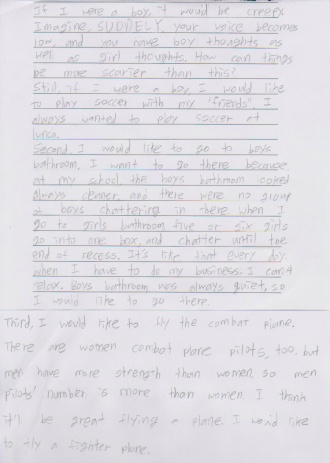 If I were a boy, it would be creepy.
Imagine, SUDDNELY your voice becomes
low, and you have boy thoughts as
well as girl thoughts. How can things
be more scarier than this?
Still, if I were a boy, I would like
to play soccer with my "friends". I
always wanted to play soccer at
lunch.
Second, I would like to go to boys
bathroom. I want to go there because
at my school, the boys bathroom looked
always cleaner, and there were no group
of boys chattering in there. when I
go to girls bathroom five or six girls
go into one box, and chatter until the
end of recess. It's like that every day.
when I have to do my business, I can't
relax. Boys bathroom was always quiet, so
I would like to go there.
Third, I would like to fly the combat plane.
There are women combat plane pilots, too, but
men have more strength than women, so men
pilots' number is more than women. I think
it'll be great flying a plane. I would like
to fly a fighter plane.